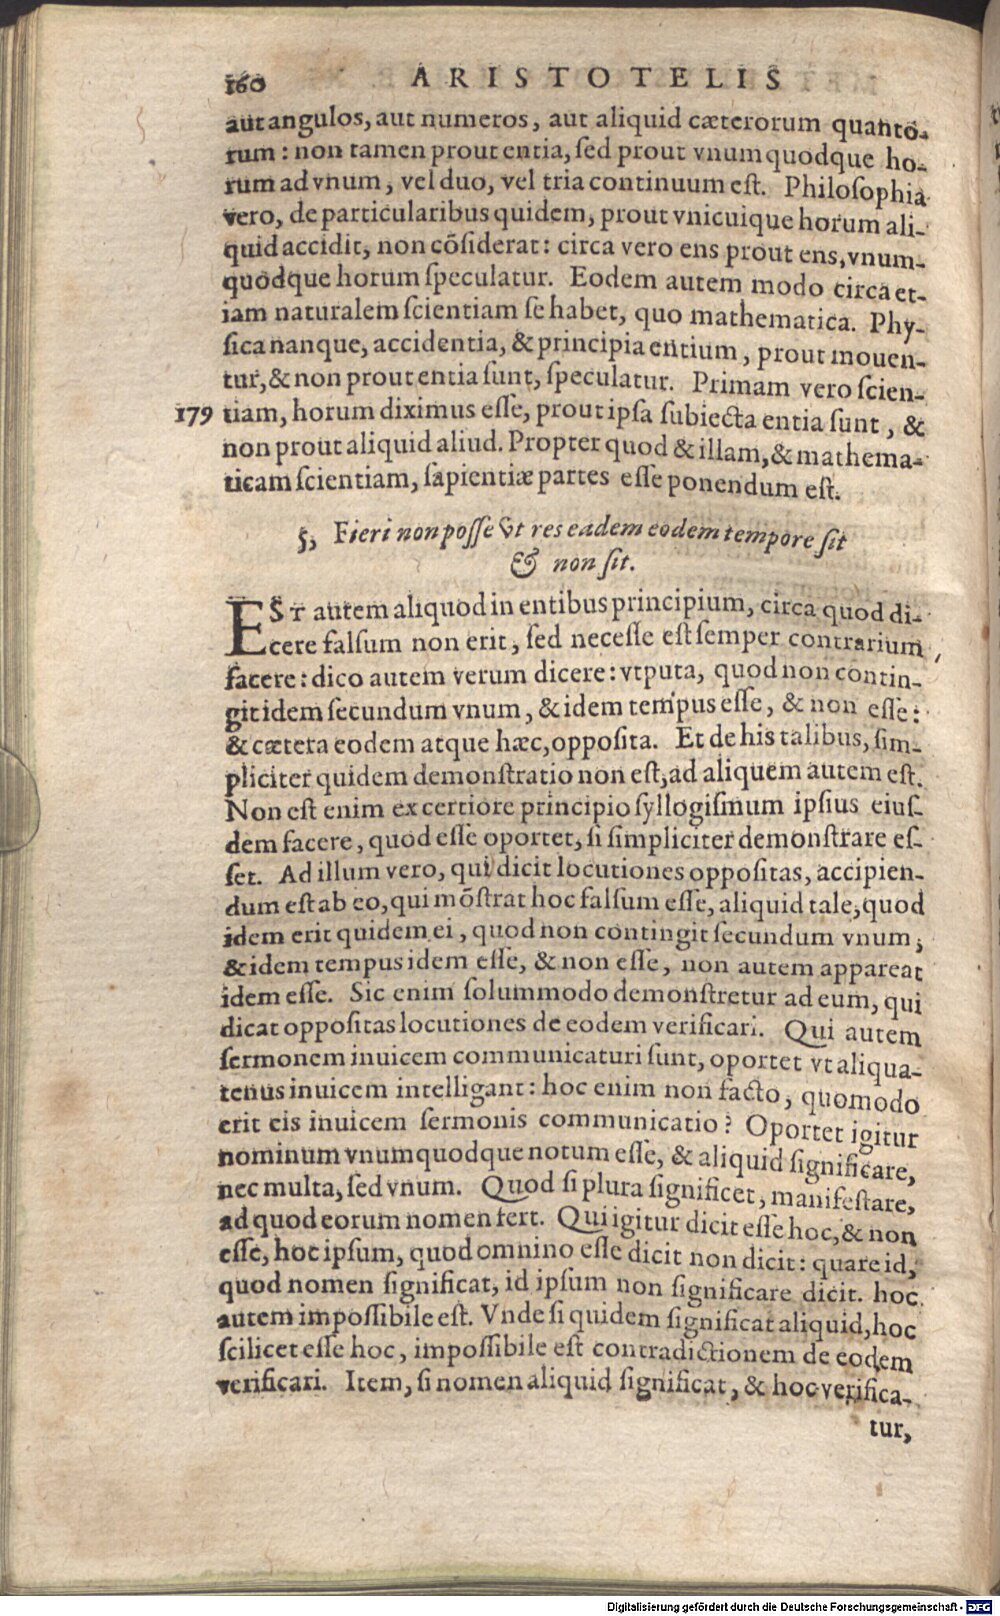 160 ARISTOTELIS
aut angulos, aut numeros, aut aliquid cæterorum quanto-
rum: non tamen prout entia, sed prout vnumquodque ho-
rum ad vnum, vel duo, vel tria continuum est. Philosophia
vero, de particularibus quidem, prout vnicuique horum ali-
quid accidit, non cōsiderat: circa vero ens prout ens, vnum-
quodque horum speculatur. Eodem autem modo circa et-
iam naturalem scientiam se habet, quo mathematica. Phy-
sica nanque, accidentia, & principia entium, prout mouen-
tur, & non prout entia sunt, speculatur. Primam vero scien-
179 tiam, horum diximus esse, prout ipsa subiecta entia sunt, &
non prout aliquid aliud. Propter quod & illam, & mathema-
ticam scientiam, sapientiæ partes esse ponendum est.
5, Fieri non posse vt res eadem eodem tempore sit
& non sit.
EST autem aliquod in entibus principium, circa quod di-
cere falsum non erit, sed necesse est semper contrarium
facere: dico autem verum dicere: vtputa, quod non contin-
git idem secundum vnum, & idem tempus esse, & non esse:
& cætera eodem atque hæc, opposita. Et de his talibus, sim-
pliciter quidem demonstratio non est, ad aliquem autem est.
Non est enim ex certiore principio syllogismum ipsius eius-
dem facere, quod esse oportet, si simpliciter demonstrare es-
set. Ad illum vero, qui dicit locutiones oppositas, accipien-
dum est ab eo, qui mōstrat hoc falsum esse, aliquid tale, quod
idem erit quidem ei, quod non contingit secundum vnum,
& idem tempus idem esse, & non esse, non autem appareat
idem esse. Sic enim solummodo demonstretur ad eum, qui
dicat oppositas locutiones de eodem verificari. Qui autem
sermonem inuicem communicaturi sunt, oportet vt aliqua-
tenus inuicem intelligant: hoc enim non facto, quomodo
erit eis inuicem sermonis communicatio? Oportet igitur
nominum vnumquodque notum esse, & aliquid significare,
nec multa, sed vnum. Quod si plura significet, manifestare,
ad quod eorum nomen fert. Qui igitur dicit esse hoc, & non
esse, hoc ipsum, quod omnino esse dicit non dicit: quare id,
quod nomen significat, id ipsum non significare dicit. hoc
autem impossibile est. Vnde si quidem significat aliquid, hoc
scilicet esse hoc, impossibile est contradictionem de eodem
verificari. Item, si nomen aliquid significat, & hoc verifica-
tur,
Digitalisierung gefördert durch die Deutsche Forschungsgemeinschaft - DFG